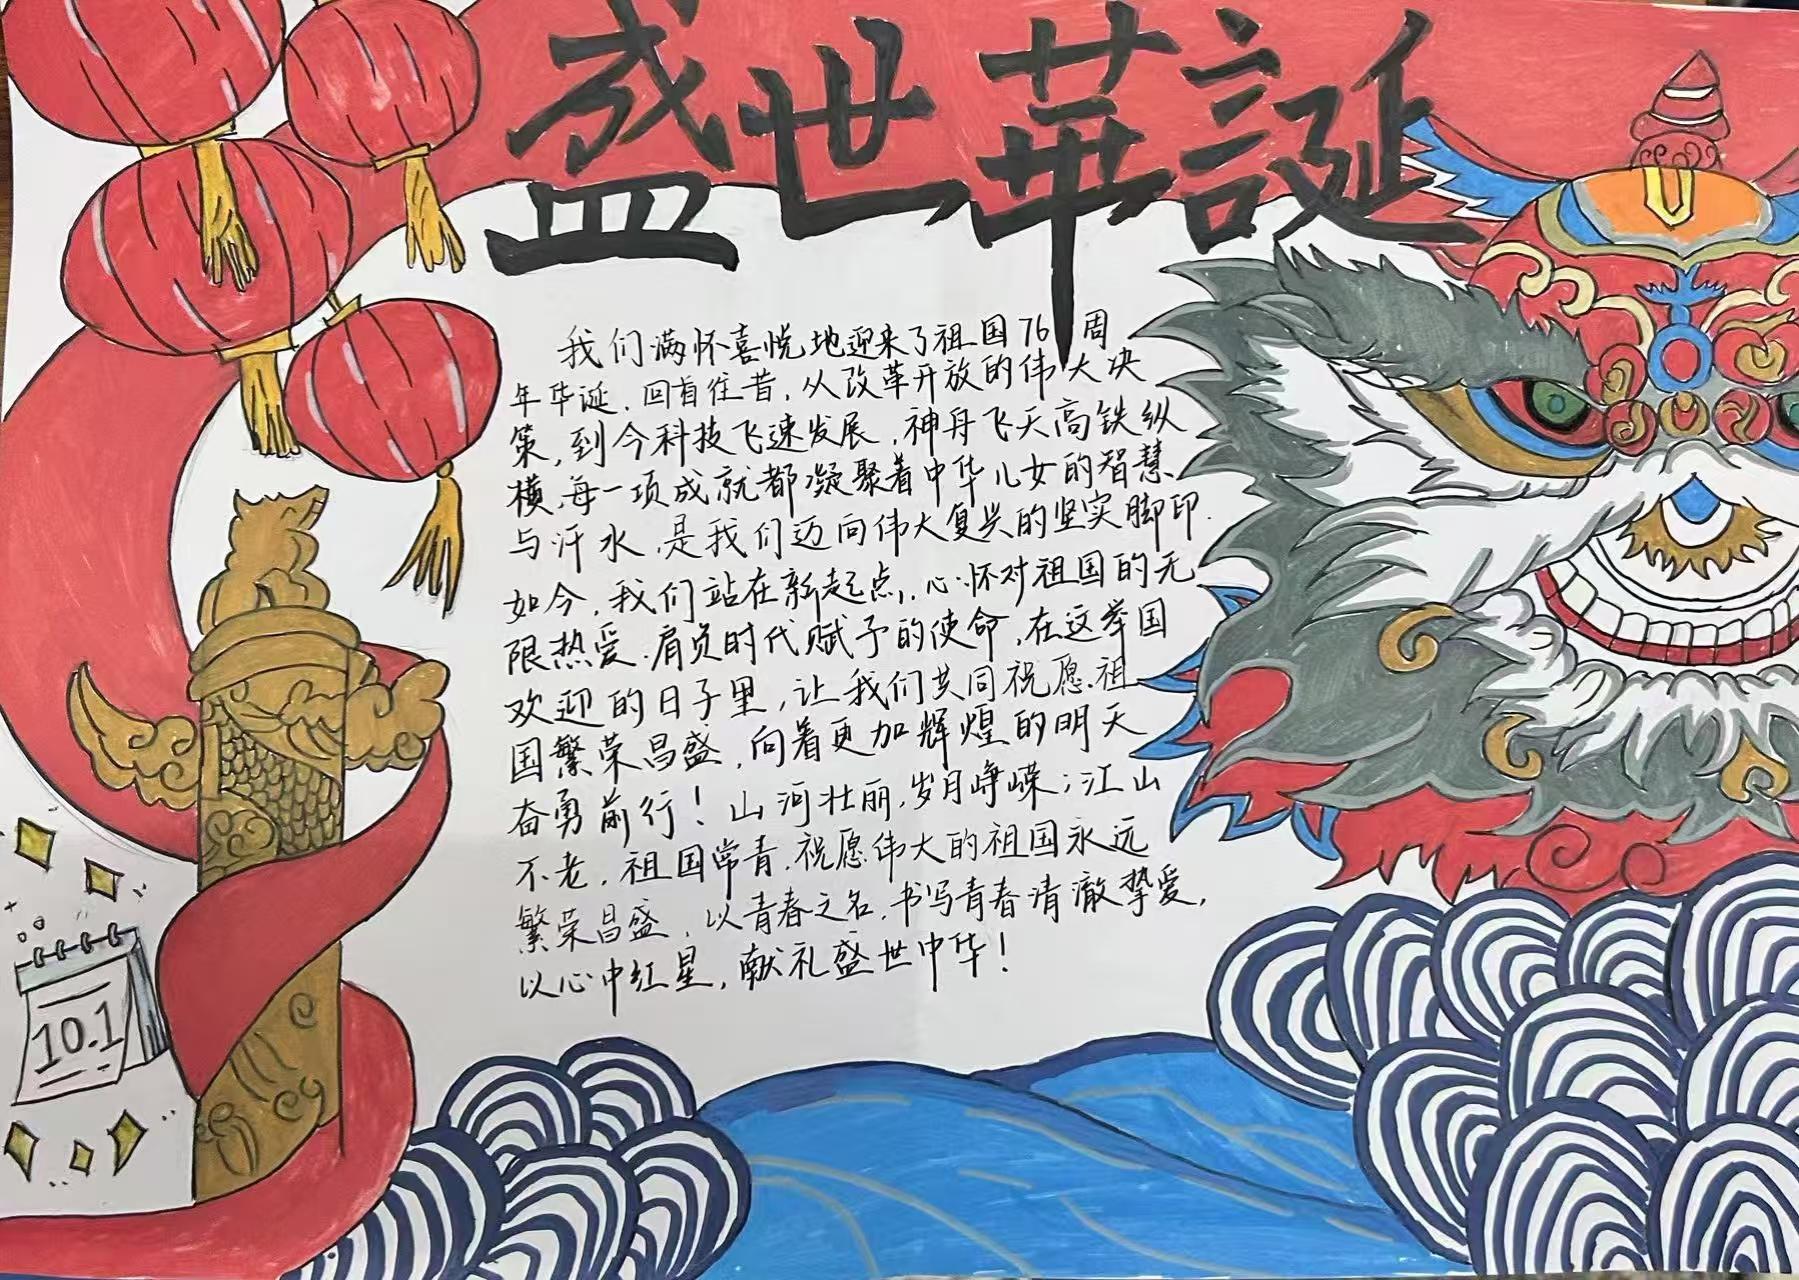 盛世華誕
我们满怀喜悦地迎来了祖国76周
年华诞，回首往昔，从改革开放的伟大决
策，到今科技飞速发展，神舟飞天高铁纵
横，每一项成就都凝聚着中华儿女的智慧
与汗水，是我们迈向伟大复兴的坚实脚印.
如今，我们站在新起点，心怀对祖国的无
限热爱，肩负时代赋予的使命，在这举国
欢迎的日子里，让我们共同祝愿祖
国繁荣昌盛，向着更加辉煌的明天
奋勇前行！山河壮丽，岁月峥嵘；江山
不老，祖国常青，祝愿伟大的祖国永远
繁荣昌盛，以青春之名，书写青春清澈挚爱，
以心中红星，献礼盛世中华！
10.1